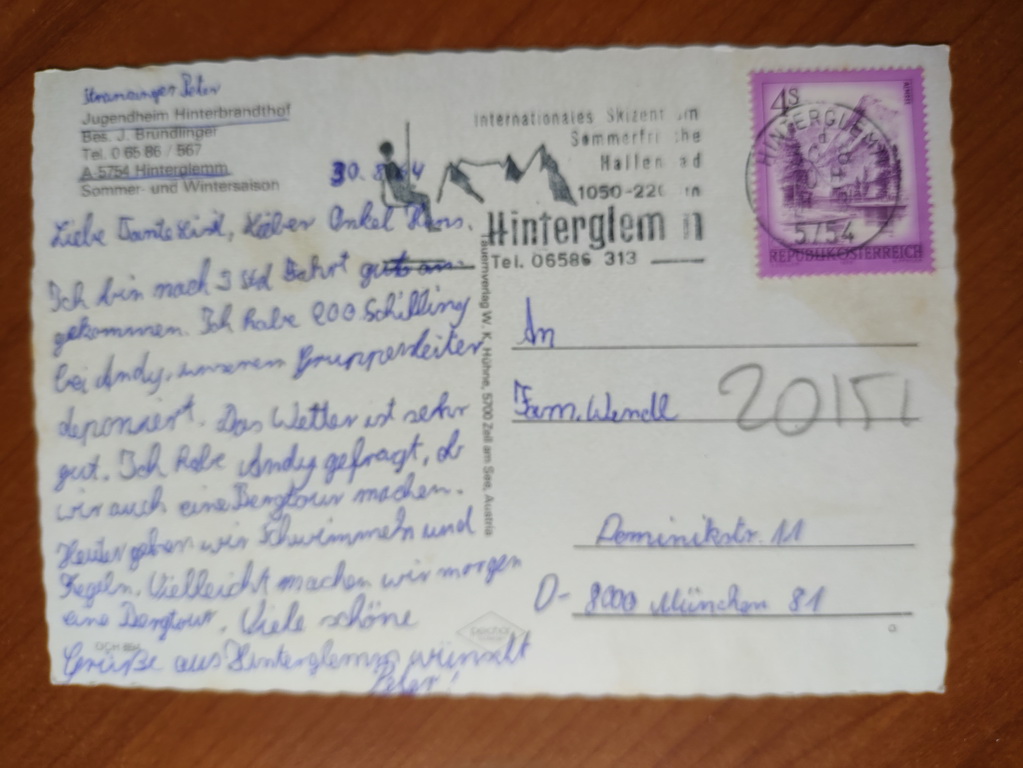 Stranzinger Peter
Jugendheim Hinterbrandthof
Bes. J. Bründlinger
Tel. 0 65 86 / 567
A-5754 Hinterglemm
Sommer- und Wintersaison
30.8.84
Liebe Tante, Lieber Onkel Hans.
Ich bin nach 3 Std Fahrt gut an-
gekommen. Ich habe 200 Schilling
bei Andy, unserem Gruppenleiter
deponiert. Das Wetter ist sehr
gut. Ich habe Andy gefragt, ob
wir auch eine Bergtour machen.
Heute gehen wir Schwimmeln und
Kegeln. Vielleicht machen wir morgen
eine Bergtour. Viele schöne
Grüße aus Hinterglemm wünscht
Peter!
Internationales
Hinterglem
Tel. 06586 313
4S
HINTERGLEMM
5754
REPUBLIK ÖSTERREICH
Tauernverlag W. K. Hühne, 5700 Zell am See, Austria
An
Fam. Wendl
20151
Dominikstr. 11
D- 8000 München 81